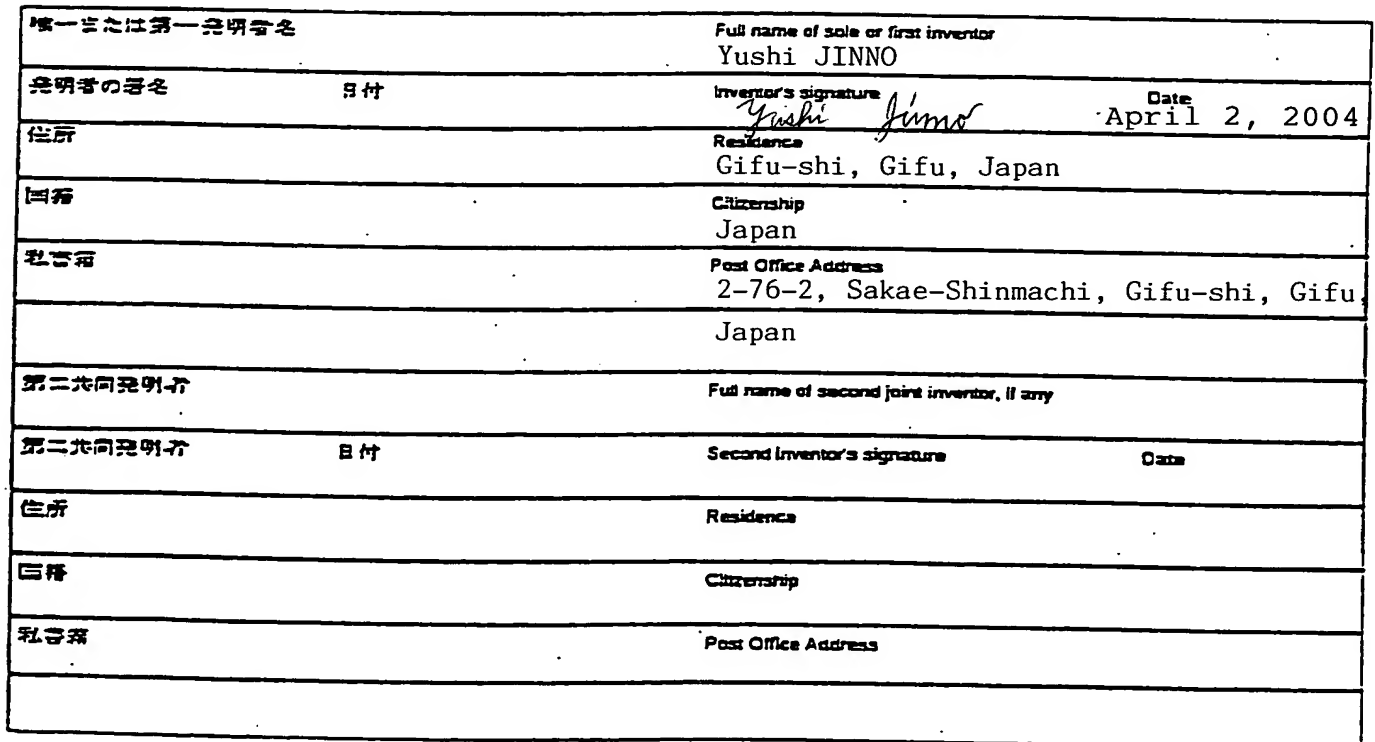 唯一または第一発明者名
Full name of sole or first inventor
Yushi JINNO
発明者の署名 日付
Inventor's signature Date
Yushi Jinno April 2, 2004
住所
Residence
Gifu-shi, Gifu, Japan
国籍
Citizenship
Japan
私書箱
Post Office Address
2-76-2, Sakae-Shinmachi, Gifu-shi, Gifu,
Japan
第二共同発明者
Full name of second joint inventor, if any
第二共同発明者 日付
Second inventor's signature Date
住所
Residence
国籍
Citizenship
私書箱
Post Office Address